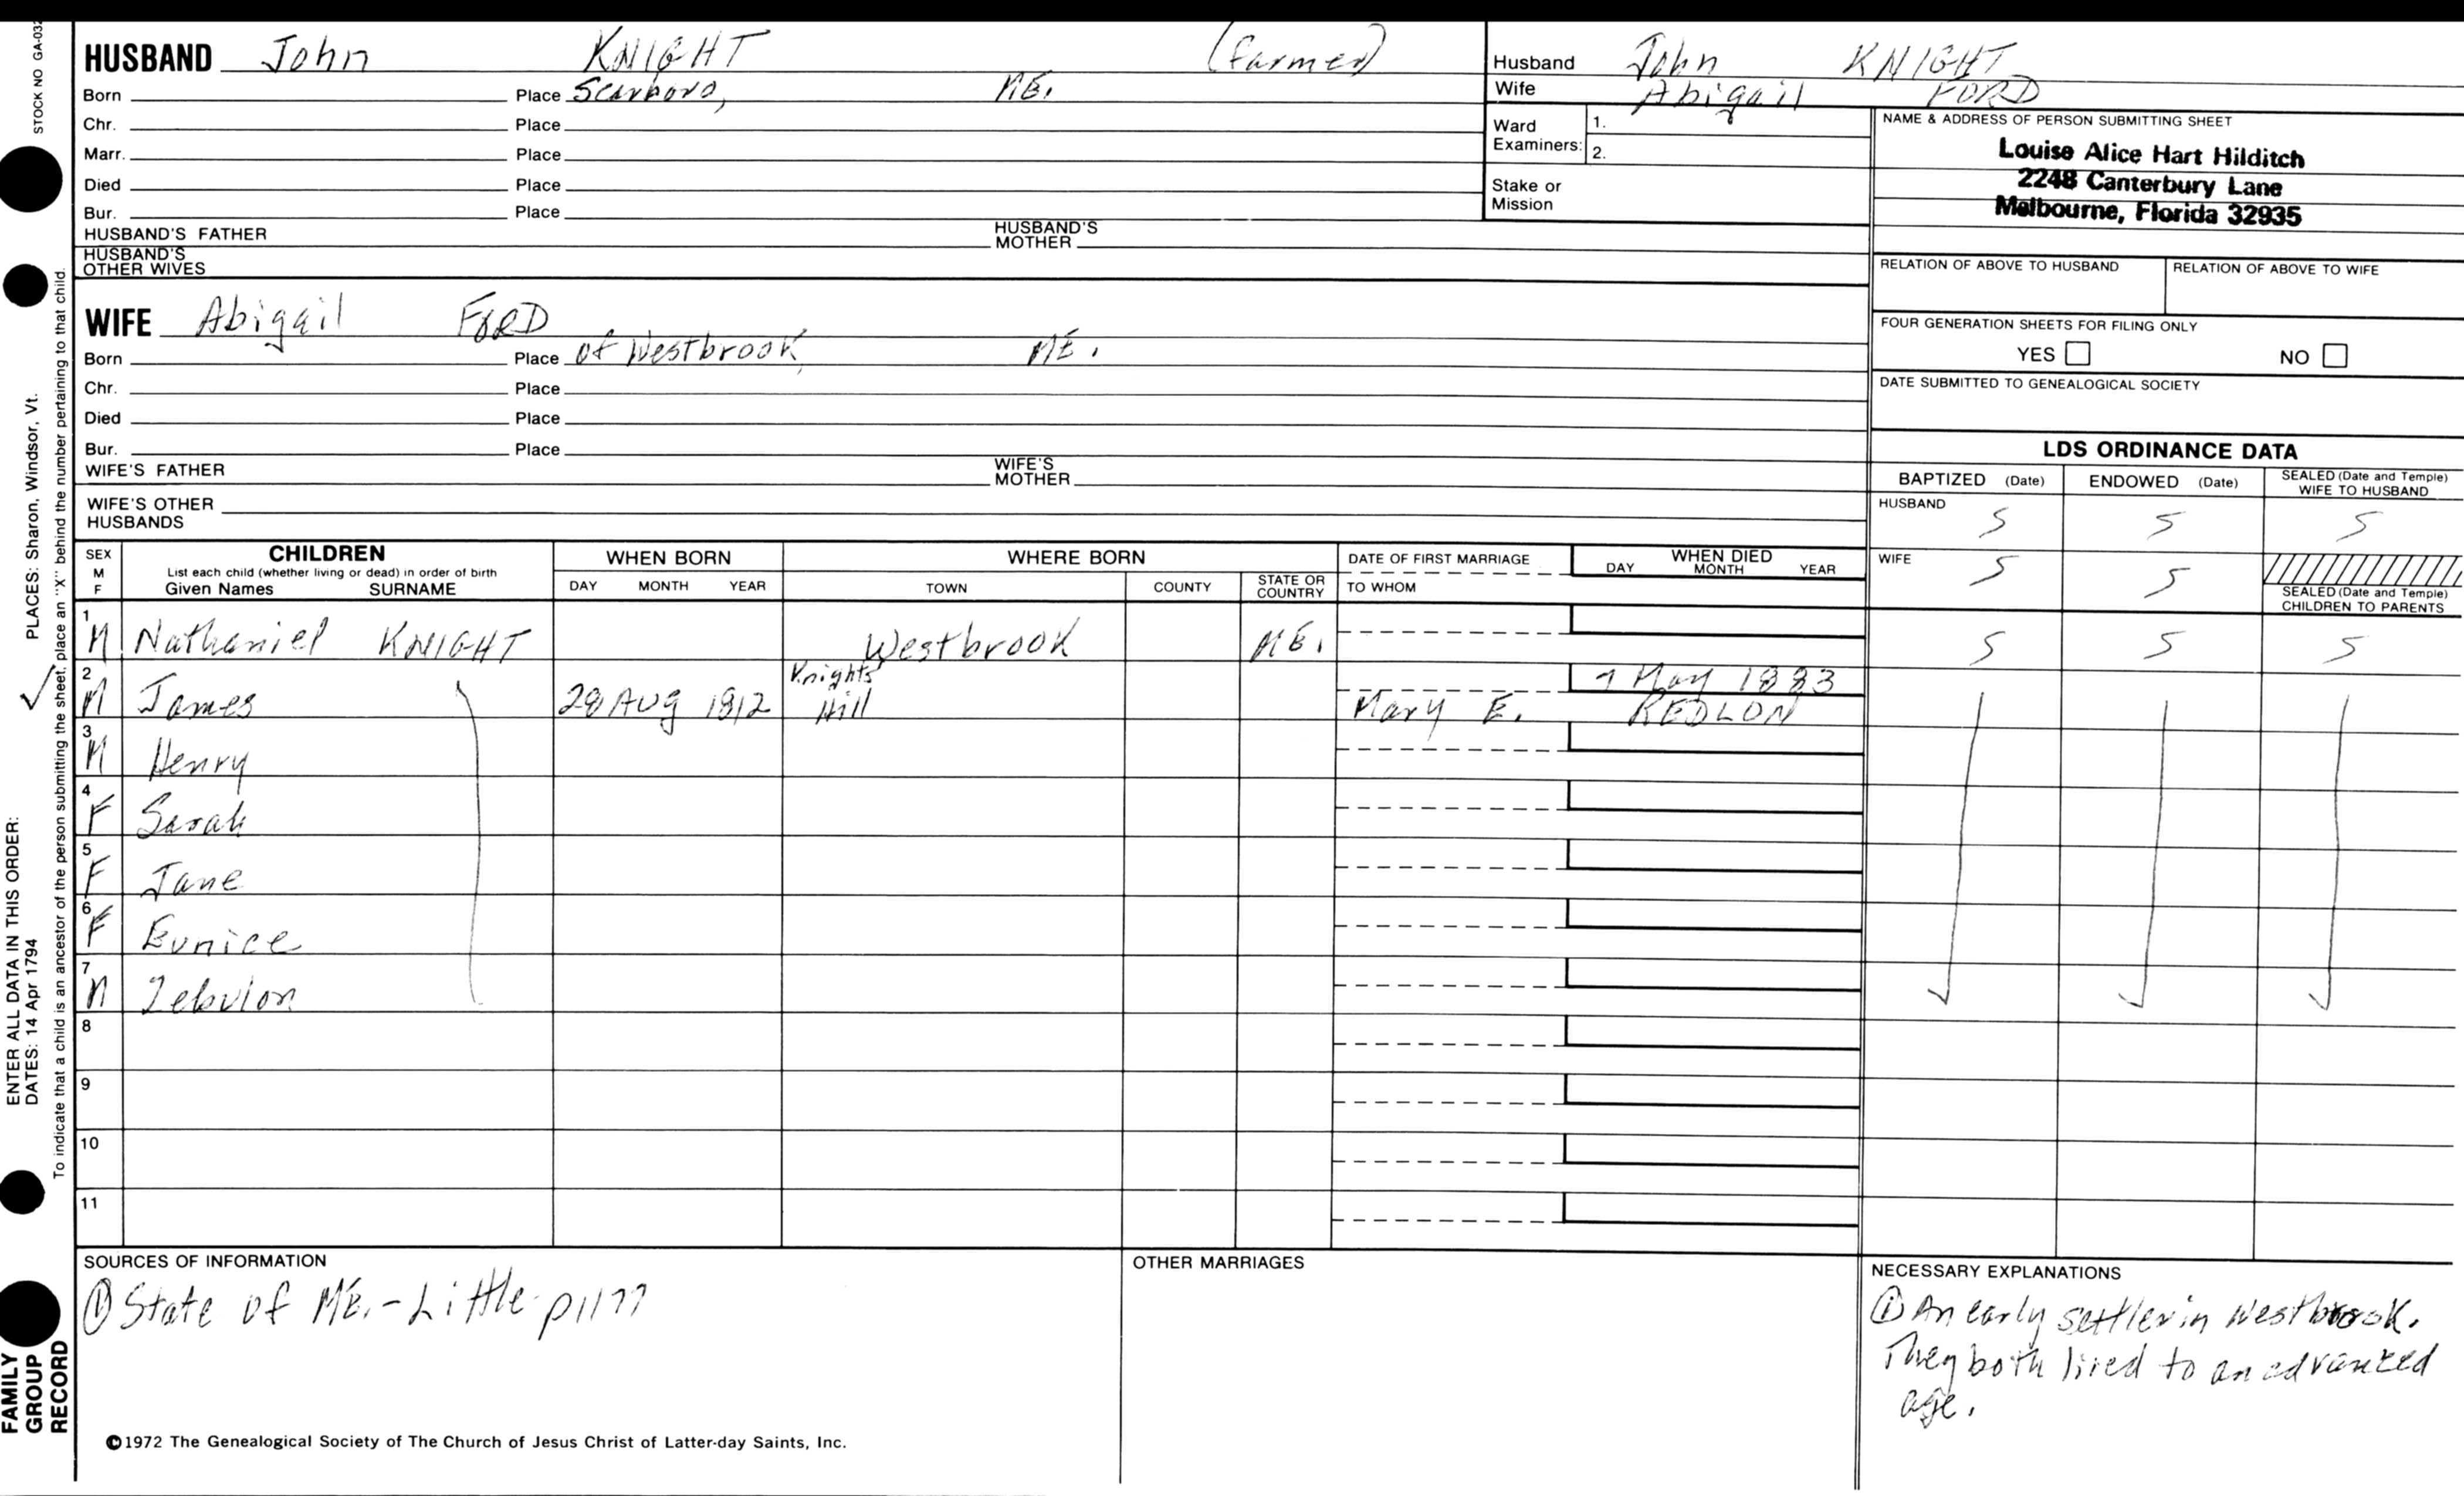 STOCK NO GA-032
HUSBAND John KNIGHT (farmer)
Born Place Scarboro, ME.
Chr. Place
Marr. Place
Died Place
Bur. Place
HUSBAND'S FATHER HUSBAND'S MOTHER
HUSBAND'S OTHER WIVES
WIFE Abigail FORD
Born Place of Westbrook, ME.
Chr. Place
Died Place
Bur. Place
WIFE'S FATHER WIFE'S MOTHER
WIFE'S OTHER HUSBANDS
Husband John KNIGHT
Wife Abigail FORD
Ward Examiners: 1.
2.
Stake or Mission
NAME & ADDRESS OF PERSON SUBMITTING SHEET
Louise Alice Hart Hilditch
2248 Canterbury Lane
Melbourne, Florida 32935
RELATION OF ABOVE TO HUSBAND RELATION OF ABOVE TO WIFE
FOUR GENERATION SHEETS FOR FILING ONLY
YES NO
DATE SUBMITTED TO GENEALOGICAL SOCIETY
LDS ORDINANCE DATA
BAPTIZED (Date) ENDOWED (Date) SEALED (Date and Temple) WIFE TO HUSBAND
HUSBAND S S S
WIFE S S
SEALED (Date and Temple) CHILDREN TO PARENTS
SEX M F
CHILDREN
List each child (whether living or dead) in order of birth
Given Names SURNAME
WHEN BORN
DAY MONTH YEAR
WHERE BORN
TOWN COUNTY STATE OR COUNTRY
DATE OF FIRST MARRIAGE
TO WHOM
WHEN DIED
DAY MONTH YEAR
1 M Nathaniel KNIGHT Westbrook ME. S S S
2 M James 28 AUG 1812 Knights Hill Mary E. REDLON 7 May 1883
3 M Henry
4 F Sarah
5 F Jane
6 F Eunice
7 M Zebulon
8
9
10
11
SOURCES OF INFORMATION
① State of ME.-Little-p1177
OTHER MARRIAGES
NECESSARY EXPLANATIONS
① An early settler in Westbrook.
They both lived to an advanced
age.
©1972 The Genealogical Society of The Church of Jesus Christ of Latter-day Saints, Inc.
FAMILY
GROUP
RECORD
ENTER ALL DATA IN THIS ORDER:
DATES: 14 Apr 1794 PLACES: Sharon, Windsor, Vt.
To indicate that a child is an ancestor of the person submitting the sheet, place an "X" behind the number pertaining to that child.